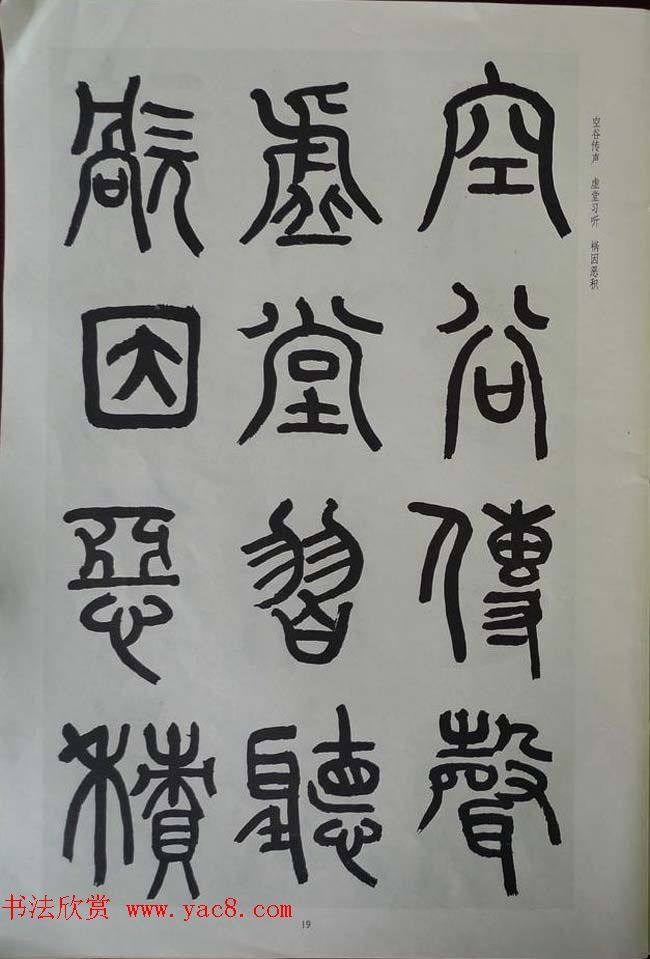 空谷传声 虚堂习听 祸因恶积
空谷傳聲
虚堂習聽
禍因惡積
书法欣赏 www.yac8.com
19